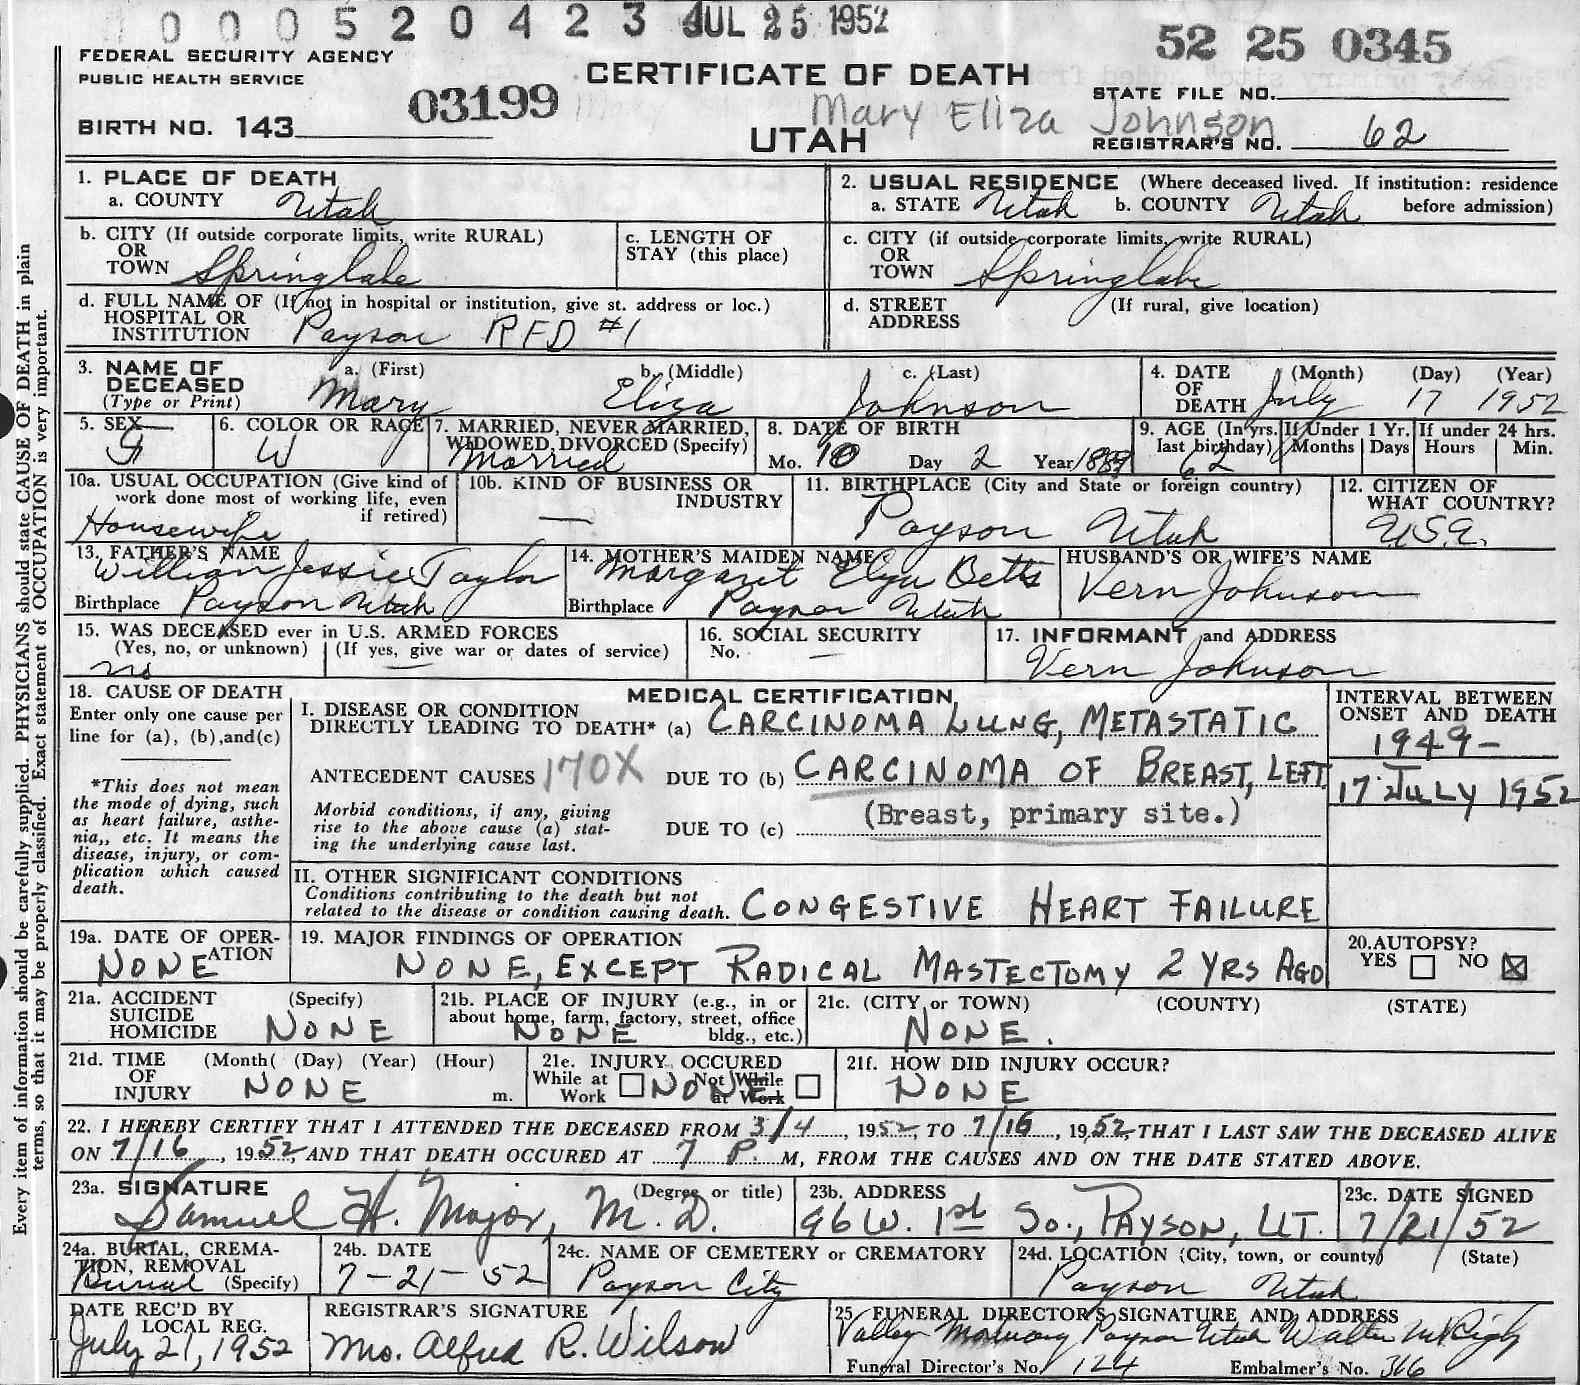 00052 0423 JUL 25 1952
52 25 0345
FEDERAL SECURITY AGENCY
PUBLIC HEALTH SERVICE
CERTIFICATE OF DEATH
UTAH
03199
BIRTH NO. 143
Mary Eliza Johnson
STATE FILE NO.
REGISTRAR'S NO. 62
Every item of information should be carefully supplied. PHYSICIANS should state CAUSE OF DEATH in plain
terms, so that it may be properly classified. Exact statement of OCCUPATION is very important.
1. PLACE OF DEATH
a. COUNTY Utah
2. USUAL RESIDENCE (Where deceased lived. If institution: residence
before admission)
a. STATE Utah b. COUNTY Utah
b. CITY (If outside corporate limits, write RURAL)
OR
TOWN Springlake
c. LENGTH OF
STAY (this place)
c. CITY (if outside corporate limits, write RURAL)
OR
TOWN Springlake
d. FULL NAME OF (If not in hospital or institution, give st. address or loc.)
HOSPITAL OR
INSTITUTION Payson RFD #1
d. STREET (If rural, give location)
ADDRESS
3. NAME OF
DECEASED
(Type or Print)
a. (First) b. (Middle) c. (Last)
Mary Eliza Johnson
4. DATE (Month) (Day) (Year)
OF
DEATH July 17 1952
5. SEX
F
6. COLOR OR RACE
W
7. MARRIED, NEVER MARRIED,
WIDOWED, DIVORCED (Specify)
Married
8. DATE OF BIRTH
Mo. 10 Day 2 Year 1889
9. AGE (In yrs.
last birthday)
62
If Under 1 Yr.
Months Days
If under 24 hrs.
Hours Min.
10a. USUAL OCCUPATION (Give kind of
work done most of working life, even
if retired)
Housewife
10b. KIND OF BUSINESS OR
INDUSTRY
—
11. BIRTHPLACE (City and State or foreign country)
Payson Utah
12. CITIZEN OF
WHAT COUNTRY?
U.S.A.
13. FATHER'S NAME
William Jessie Taylor
Birthplace Payson Utah
14. MOTHER'S MAIDEN NAME
Margaret Elza Betts
Birthplace Payson Utah
HUSBAND'S OR WIFE'S NAME
Vern Johnson
15. WAS DECEASED ever in U.S. ARMED FORCES
(Yes, no, or unknown) (If yes, give war or dates of service)
no —
16. SOCIAL SECURITY
No. —
17. INFORMANT and ADDRESS
Vern Johnson
18. CAUSE OF DEATH
Enter only one cause per
line for (a), (b), and (c)
*This does not mean
the mode of dying, such
as heart failure, asthe-
nia,, etc. It means the
disease, injury, or com-
plication which caused
death.
MEDICAL CERTIFICATION
I. DISEASE OR CONDITION
DIRECTLY LEADING TO DEATH* (a) CARCINOMA LUNG, METASTATIC
ANTECEDENT CAUSES 170X DUE TO (b) CARCINOMA OF BREAST, LEFT
Morbid conditions, if any, giving
rise to the above cause (a) stat-
ing the underlying cause last.
(Breast, primary site.)
DUE TO (c)
INTERVAL BETWEEN
ONSET AND DEATH
1949-
17 JULY 1952
II. OTHER SIGNIFICANT CONDITIONS
Conditions contributing to the death but not
related to the disease or condition causing death. CONGESTIVE HEART FAILURE
19a. DATE OF OPER-
ATION
NONE
19. MAJOR FINDINGS OF OPERATION
NONE, EXCEPT RADICAL MASTECTOMY 2 YRS AGO
20. AUTOPSY?
YES ☐ NO ☒
21a. ACCIDENT (Specify)
SUICIDE
HOMICIDE NONE
21b. PLACE OF INJURY (e.g., in or
about home, farm, factory, street, office
bldg., etc.)
NONE
21c. (CITY or TOWN) (COUNTY) (STATE)
NONE.
21d. TIME (Month( (Day) (Year) (Hour)
OF
INJURY NONE m.
21e. INJURY OCCURED
While at ☐ Not While ☐
Work at Work
NONE
21f. HOW DID INJURY OCCUR?
NONE
22. I HEREBY CERTIFY THAT I ATTENDED THE DECEASED FROM 3/4, 1952, TO 7/16, 1952, THAT I LAST SAW THE DECEASED ALIVE
ON 7/16, 1952, AND THAT DEATH OCCURED AT 7 P. M, FROM THE CAUSES AND ON THE DATE STATED ABOVE.
23a. SIGNATURE (Degree or title)
Samuel H. Major, M.D.
23b. ADDRESS
96 W. 1st So., PAYSON, UT.
23c. DATE SIGNED
7/21/52
24a. BURIAL, CREMA-
TION, REMOVAL
Burial (Specify)
24b. DATE
7-21-52
24c. NAME OF CEMETERY or CREMATORY
Payson City
24d. LOCATION (City, town, or county) (State)
Payson Utah
DATE REC'D BY
LOCAL REG.
July 21, 1952
REGISTRAR'S SIGNATURE
Mrs. Alfred R. Wilson
25 FUNERAL DIRECTOR'S SIGNATURE AND ADDRESS
Valley Mortuary Payson Utah Walter
Funeral Director's No. 124 Embalmer's No. 366